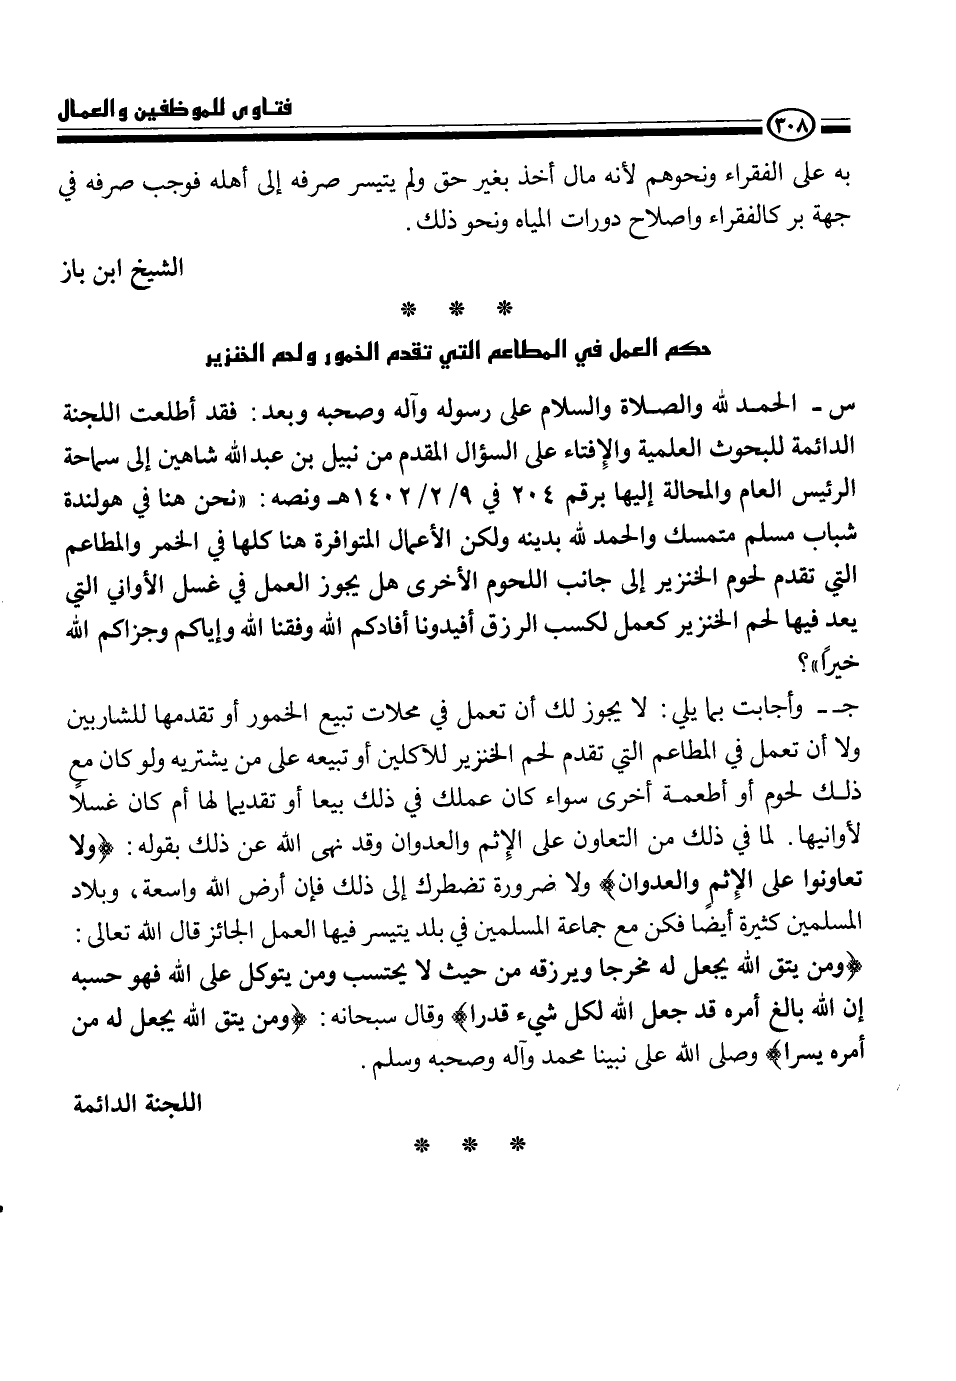 فتاوى للموظفين والعمال
٣٠٨
به على الفقراء ونحوهم لأنه مال أخذ بغير حق ولم يتيسر صرفه إلى أهله فوجب صرفه في
جهة بر كالفقراء واصلاح دورات المياه ونحو ذلك.
الشيخ ابن باز
* * *
حكم العمل في المطاعم التي تقدم الخمور ولحم الخنزير
س ـ الحمـد لله والصـلاة والسلام على رسوله وآله وصحبه وبعد: فقد أطلعت اللجنة
الدائمة للبحوث العلمية والإفتاء على السؤال المقدم من نبيل بن عبدالله شاهين إلى سماحة
الرئيس العام والمحالة إليها برقم ٢٠٤ في ١٤٠٢/٢/٩هـ ونصه: «نحن هنا في هولندة
شباب مسلم متمسك والحمد لله بدينه ولكن الأعمال المتوافرة هنا كلها في الخمر والمطاعم
التي تقدم لحوم الخنزير إلى جانب اللحوم الأخرى هل يجوز العمل في غسل الأواني التي
يعد فيها لحم الخنزير كعمل لكسب الرزق أفيدونا أفادكم الله وفقنا الله وإياكم وجزاكم الله
خيراً»؟
جـ ـ وأجابت بما يلي: لا يجوز لك أن تعمل في محلات تبيع الخمور أو تقدمها للشاربين
ولا أن تعمل في المطاعم التي تقدم لحم الخنزير للآكلين أو تبيعه على من يشتريه ولو كان مع
ذلـك لحوم أو أطعمـة أخرى سواء كان عملك في ذلك بيعا أو تقديما لها أم كان غسلاً
لأوانيها. لما في ذلك من التعاون على الإثم والعدوان وقد نهى الله عن ذلك بقوله: ﴿ولا
تعاونوا على الإثم والعدوان﴾ ولا ضرورة تضطرك إلى ذلك فإن أرض الله واسعة، وبلاد
المسلمين كثيرة أيضًا فكن مع جماعة المسلمين في بلد يتيسر فيها العمل الجائز قال الله تعالى:
﴿ومن يتق الله يجعل له مخرجا ويرزقه من حيث لا يحتسب ومن يتوكل على الله فهو حسبه
إن الله بالغ أمره قد جعل الله لكل شيء قدرا﴾ وقال سبحانه: ﴿ومن يتق الله يجعل له من
أمره يسرا﴾ وصلى الله على نبينا محمد وآله وصحبه وسلم.
اللجنة الدائمة
* * *